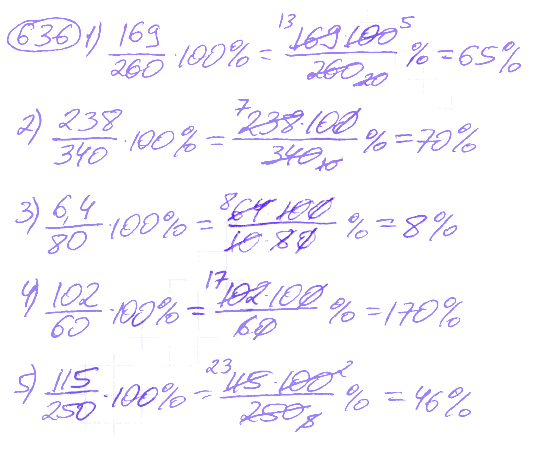 636 1) 169/260 · 100% = 13 169 100 5/260 20 % = 65%
2) 238/340 · 100% = 7 238 · 100/340 10 % = 70%
3) 6,4/80 · 100% = 8 64 100/10 · 80 % = 8%
4) 102/60 · 100% = 17 102 · 100/60 % = 170%
5) 115/250 · 100% = 23 115 · 100 2/250 5 % = 46%